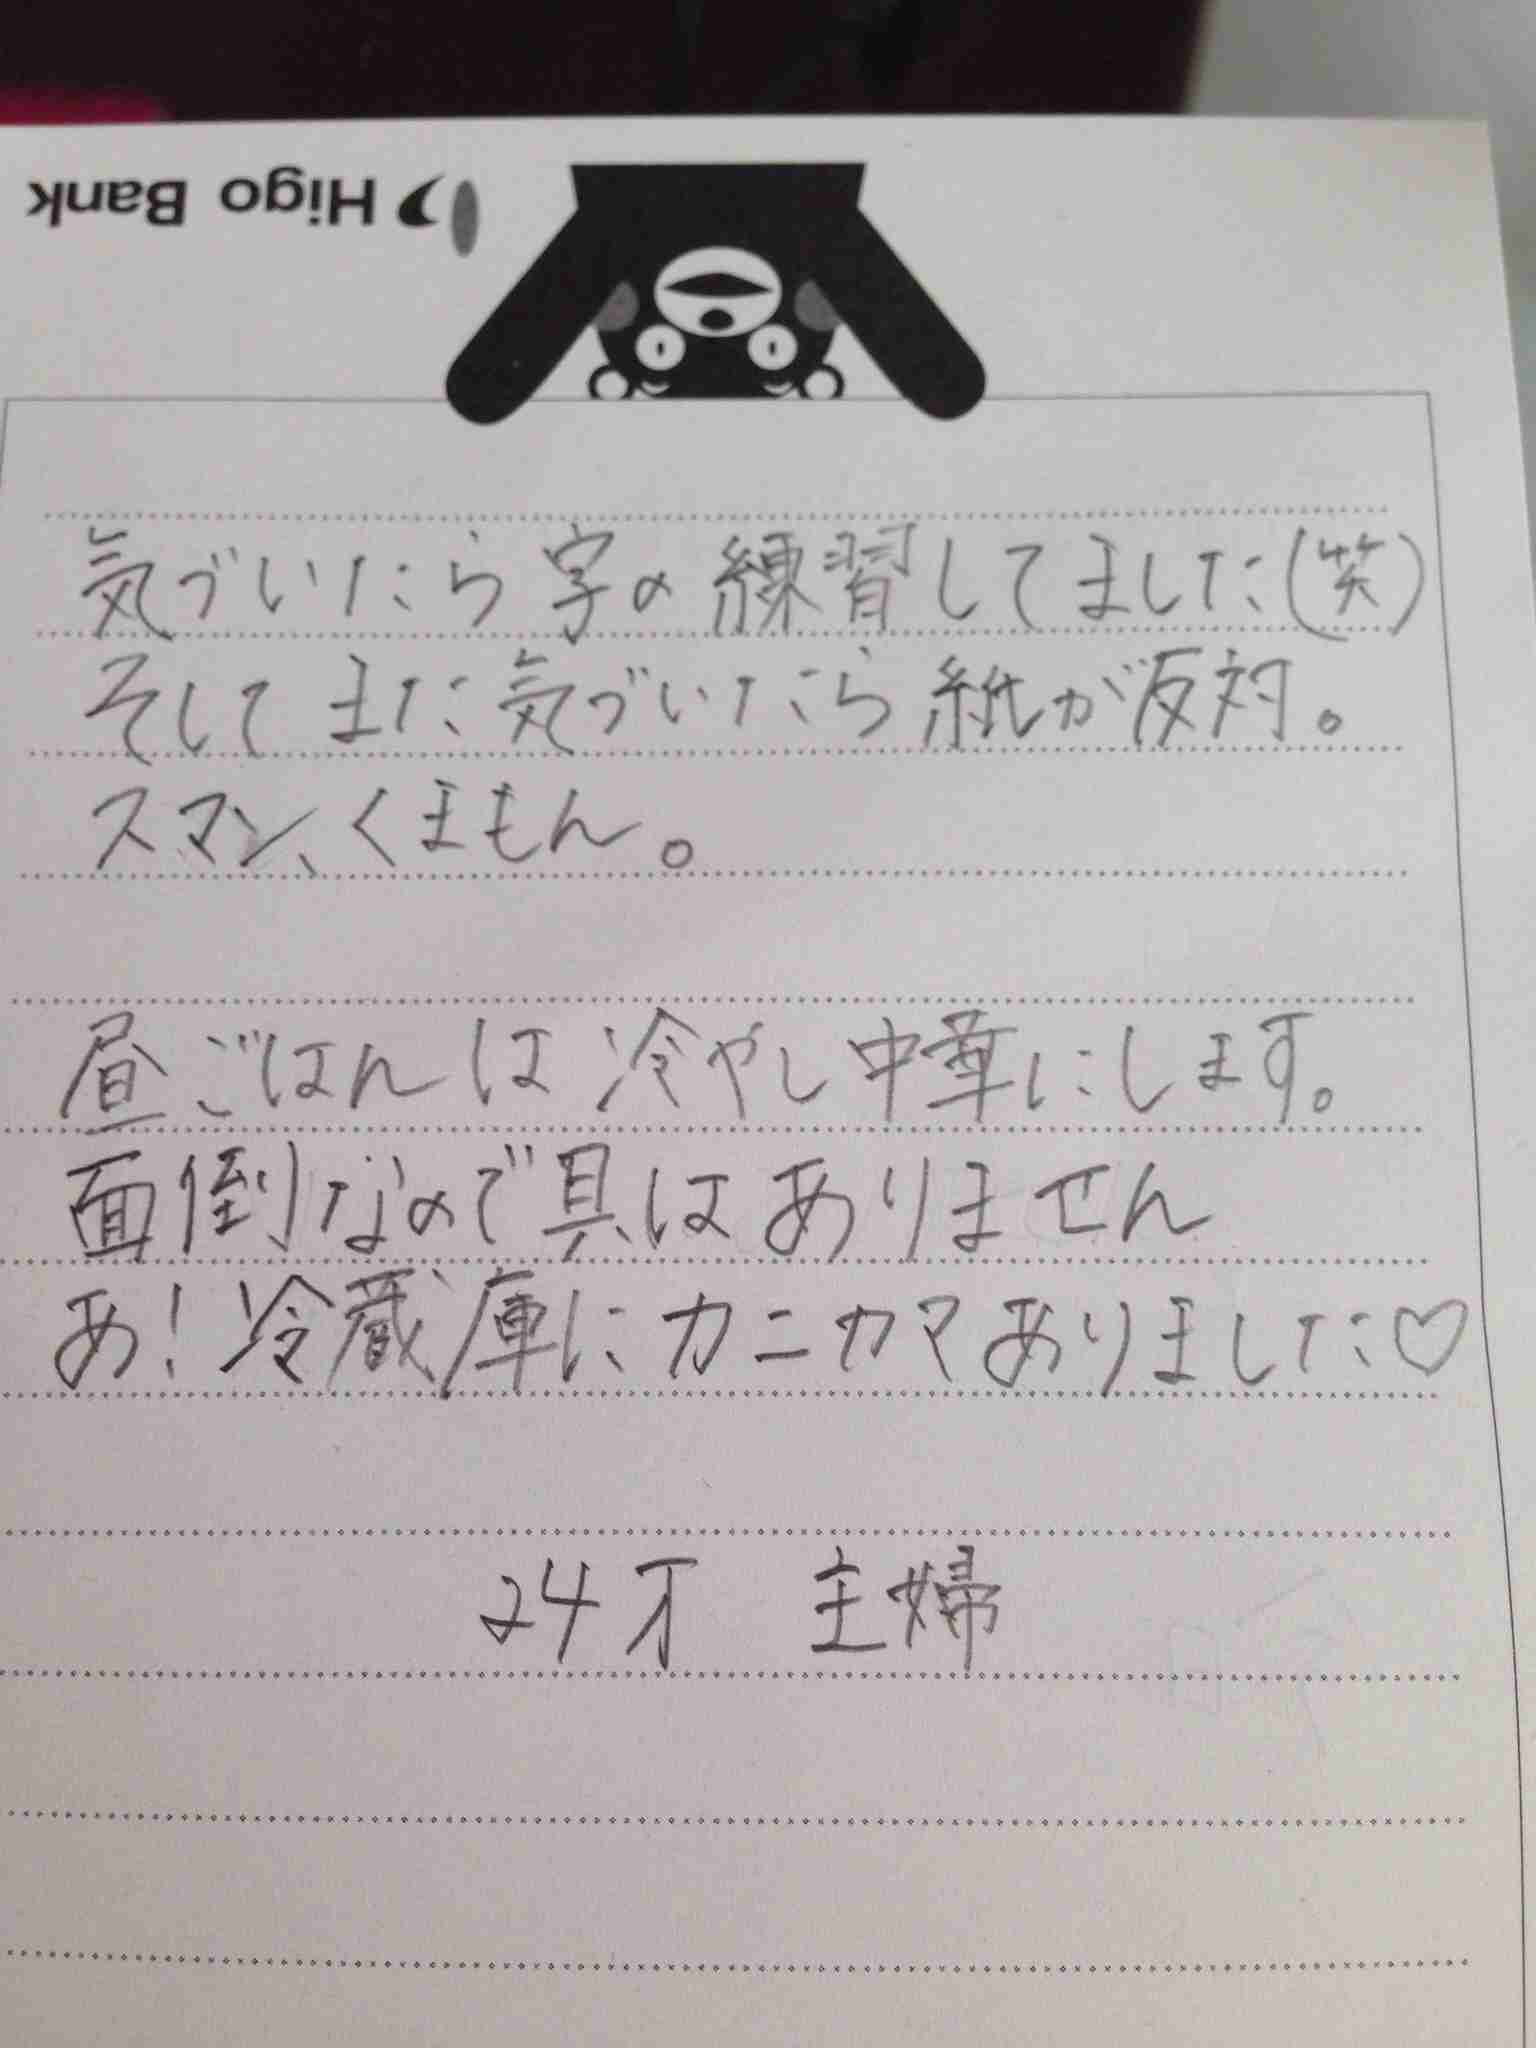 Higo Bank
気づいたら字の練習してました(笑)
そしてまた気づいたら紙が反対。
スマン、くまもん。
昼ごはんは冷やし中華にします。
面倒なので具はありません
あ!冷蔵庫にカニカマありました♡
24才 主婦